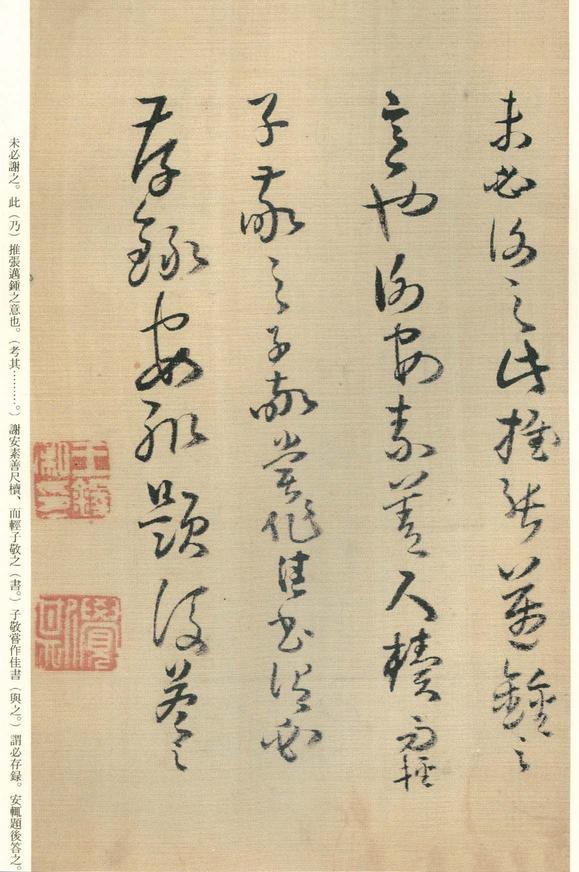 未必謝之此推張邁鍾之
意也謝安素善尺牘而輕
子敬之子敬嘗作佳書謂必
存錄安輒題後答之
未必謝之。此（乃）推張邁鍾之意也。（考其………。）謝安素善尺牘、而輕子敬之（書。）子敬嘗作佳書（與之。）謂必存録。安輒題後答之。